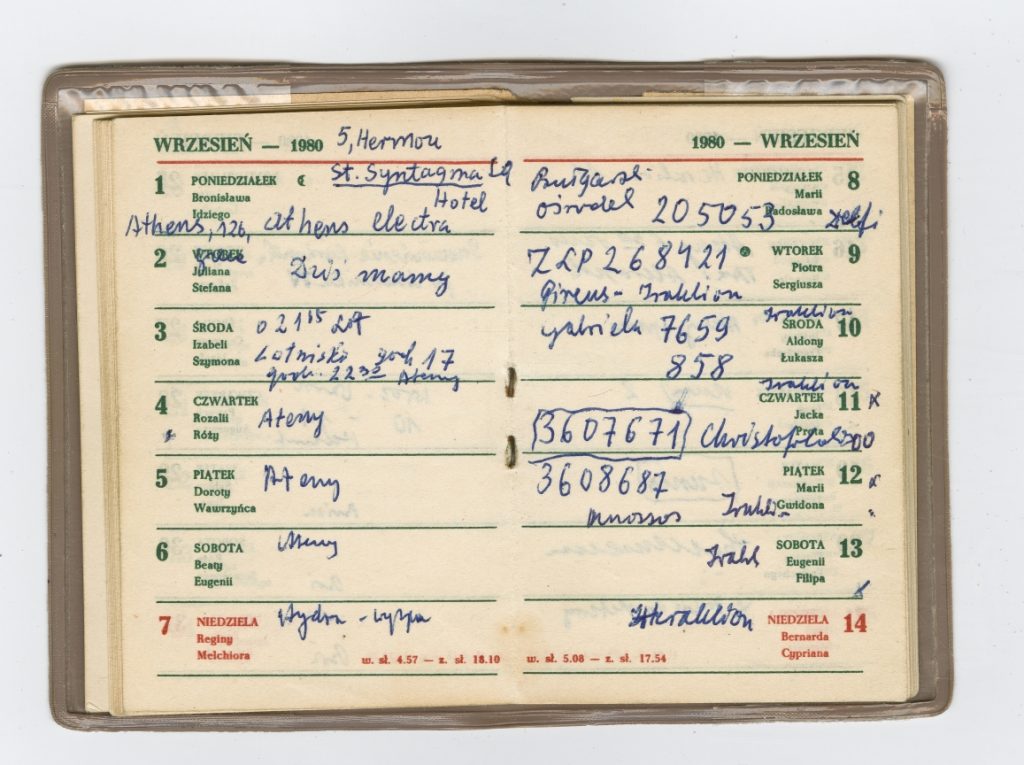 WRZESIEŃ — 1980 5, Hermou
1 PONIEDZIAŁEK St. Syntagma Sq
Bronisława Hotel
Idziego
Athens, 126, Athens electra
2 WTOREK
Juliana
Stefana
3 ŚRODA
Izabeli Lotnisko godz 17
Szymona godz. 22 30 Ateny
4 CZWARTEK
Rozalii Ateny
Róży
5 PIĄTEK Ateny
Doroty
Wawrzyńca
6 SOBOTA Ateny
Beaty
Eugenii
7 NIEDZIELA Hydra - wyspa
Reginy
Melchiora w. sł. 4.57 — z. sł. 18.10
1980 — WRZESIEŃ
PONIEDZIAŁEK 8
Marii
ośrodek 205053 Radosława Delfi
ZLP 268421 WTOREK 9
Piotra
Sergiusza
Pireus - Iraklion
Iraklion
Gabriela 7659 ŚRODA 10
Aldony
858 Łukasza
Iraklion
CZWARTEK 11
Jacka
3607671 Prota
3608687 PIĄTEK 12
Marii
Gwidona
Knossos
SOBOTA 13
Eugenii
Filipa
Heraklion NIEDZIELA 14
Bernarda
w. sł. 5.08 — z. sł. 17.54 Cypriana